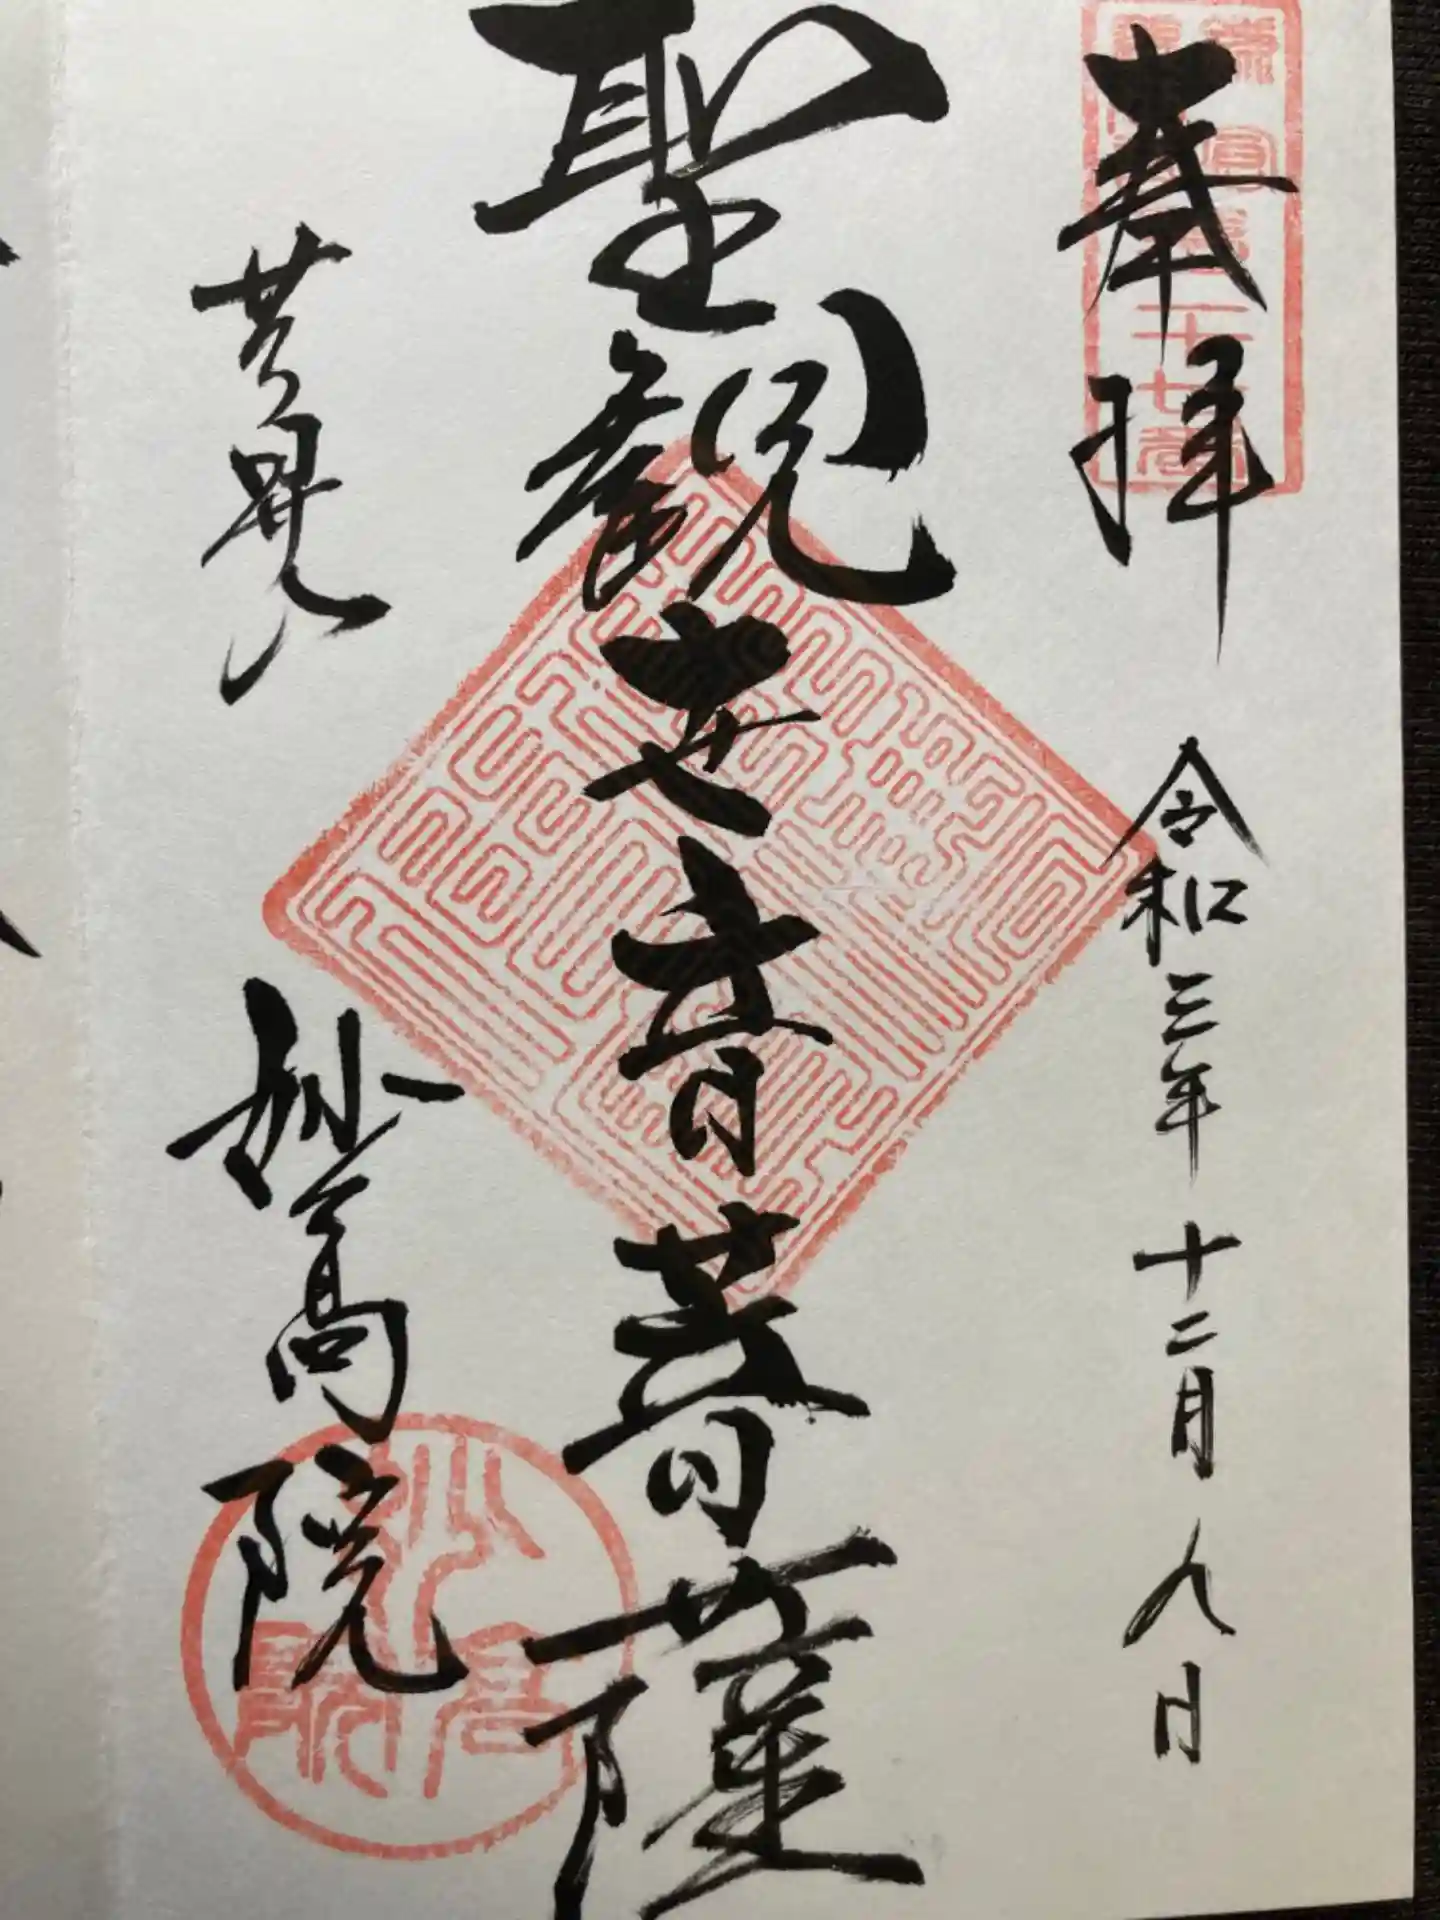 奉拝 令和三年十二月九日
聖観世音菩薩
若昇山 妙高院